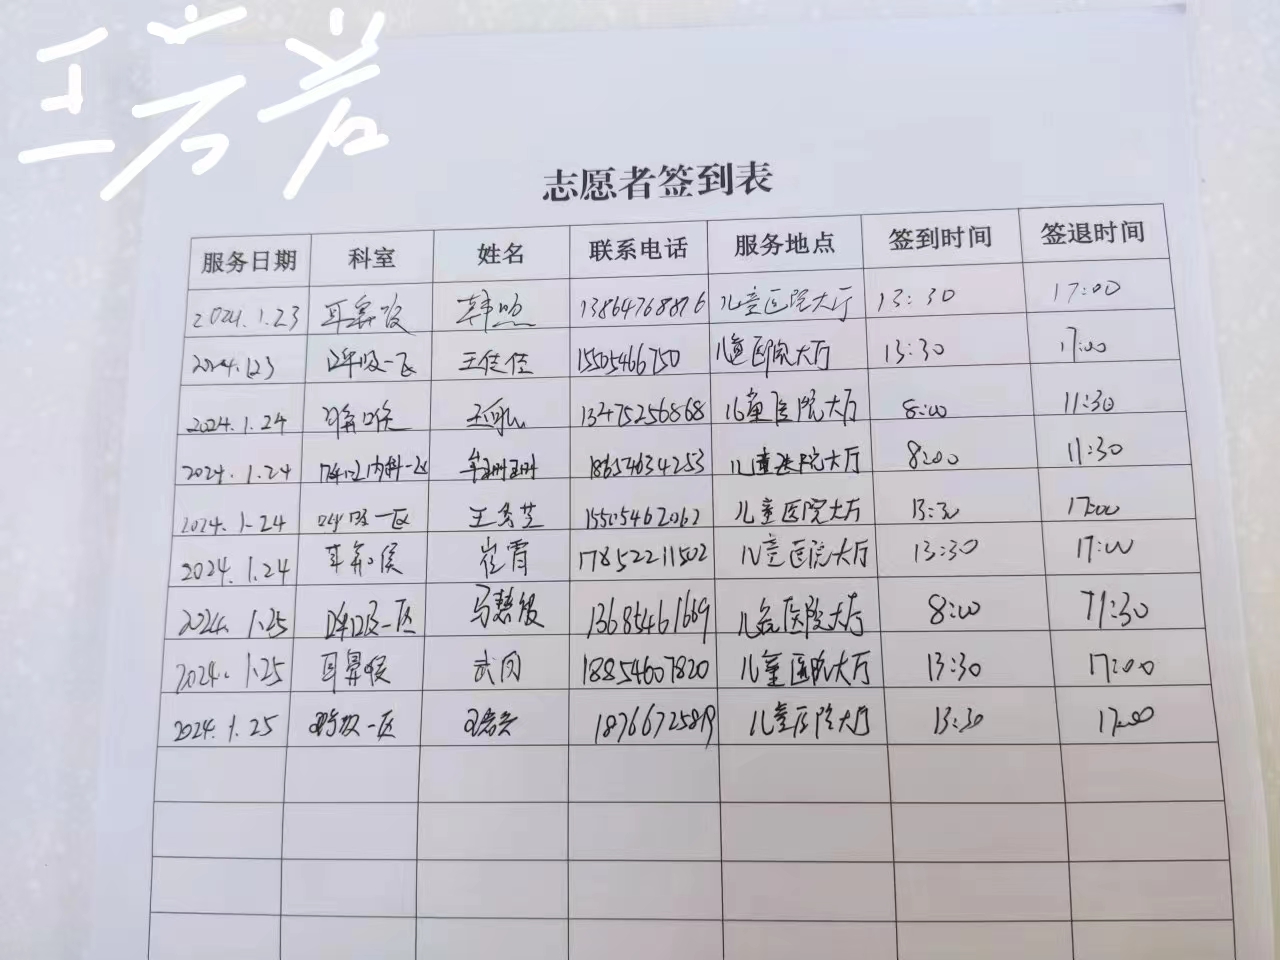 王芳芳
志愿者签到表
服务日期 科室 姓名 联系电话 服务地点 签到时间 签退时间
2024.1.23 耳鼻喉 13864768876 儿童医院大厅 13:30 17:00
2024.1.23 呼吸一区 王佳佳 15505466750 儿童医院大厅 13:30 17:00
2024.1.24 耳鼻喉 13475256868 儿童医院大厅 8:00 11:30
2024.1.24 呼吸内科一区 牟珊珊 18654634253 儿童医院大厅 8:00 11:30
2024.1.24 呼吸一区 15505462062 儿童医院大厅 13:30 17:00
2024.1.24 耳鼻喉 崔霄 17852211502 儿童医院大厅 13:30 17:00
2024.1.25 呼吸一区 马慧敏 13685461669 儿童医院大厅 8:00 11:30
2024.1.25 耳鼻喉 18854607820 儿童医院大厅 13:30 17:00
2024.1.25 呼吸一区 18766725819 儿童医院大厅 13:30 17:00